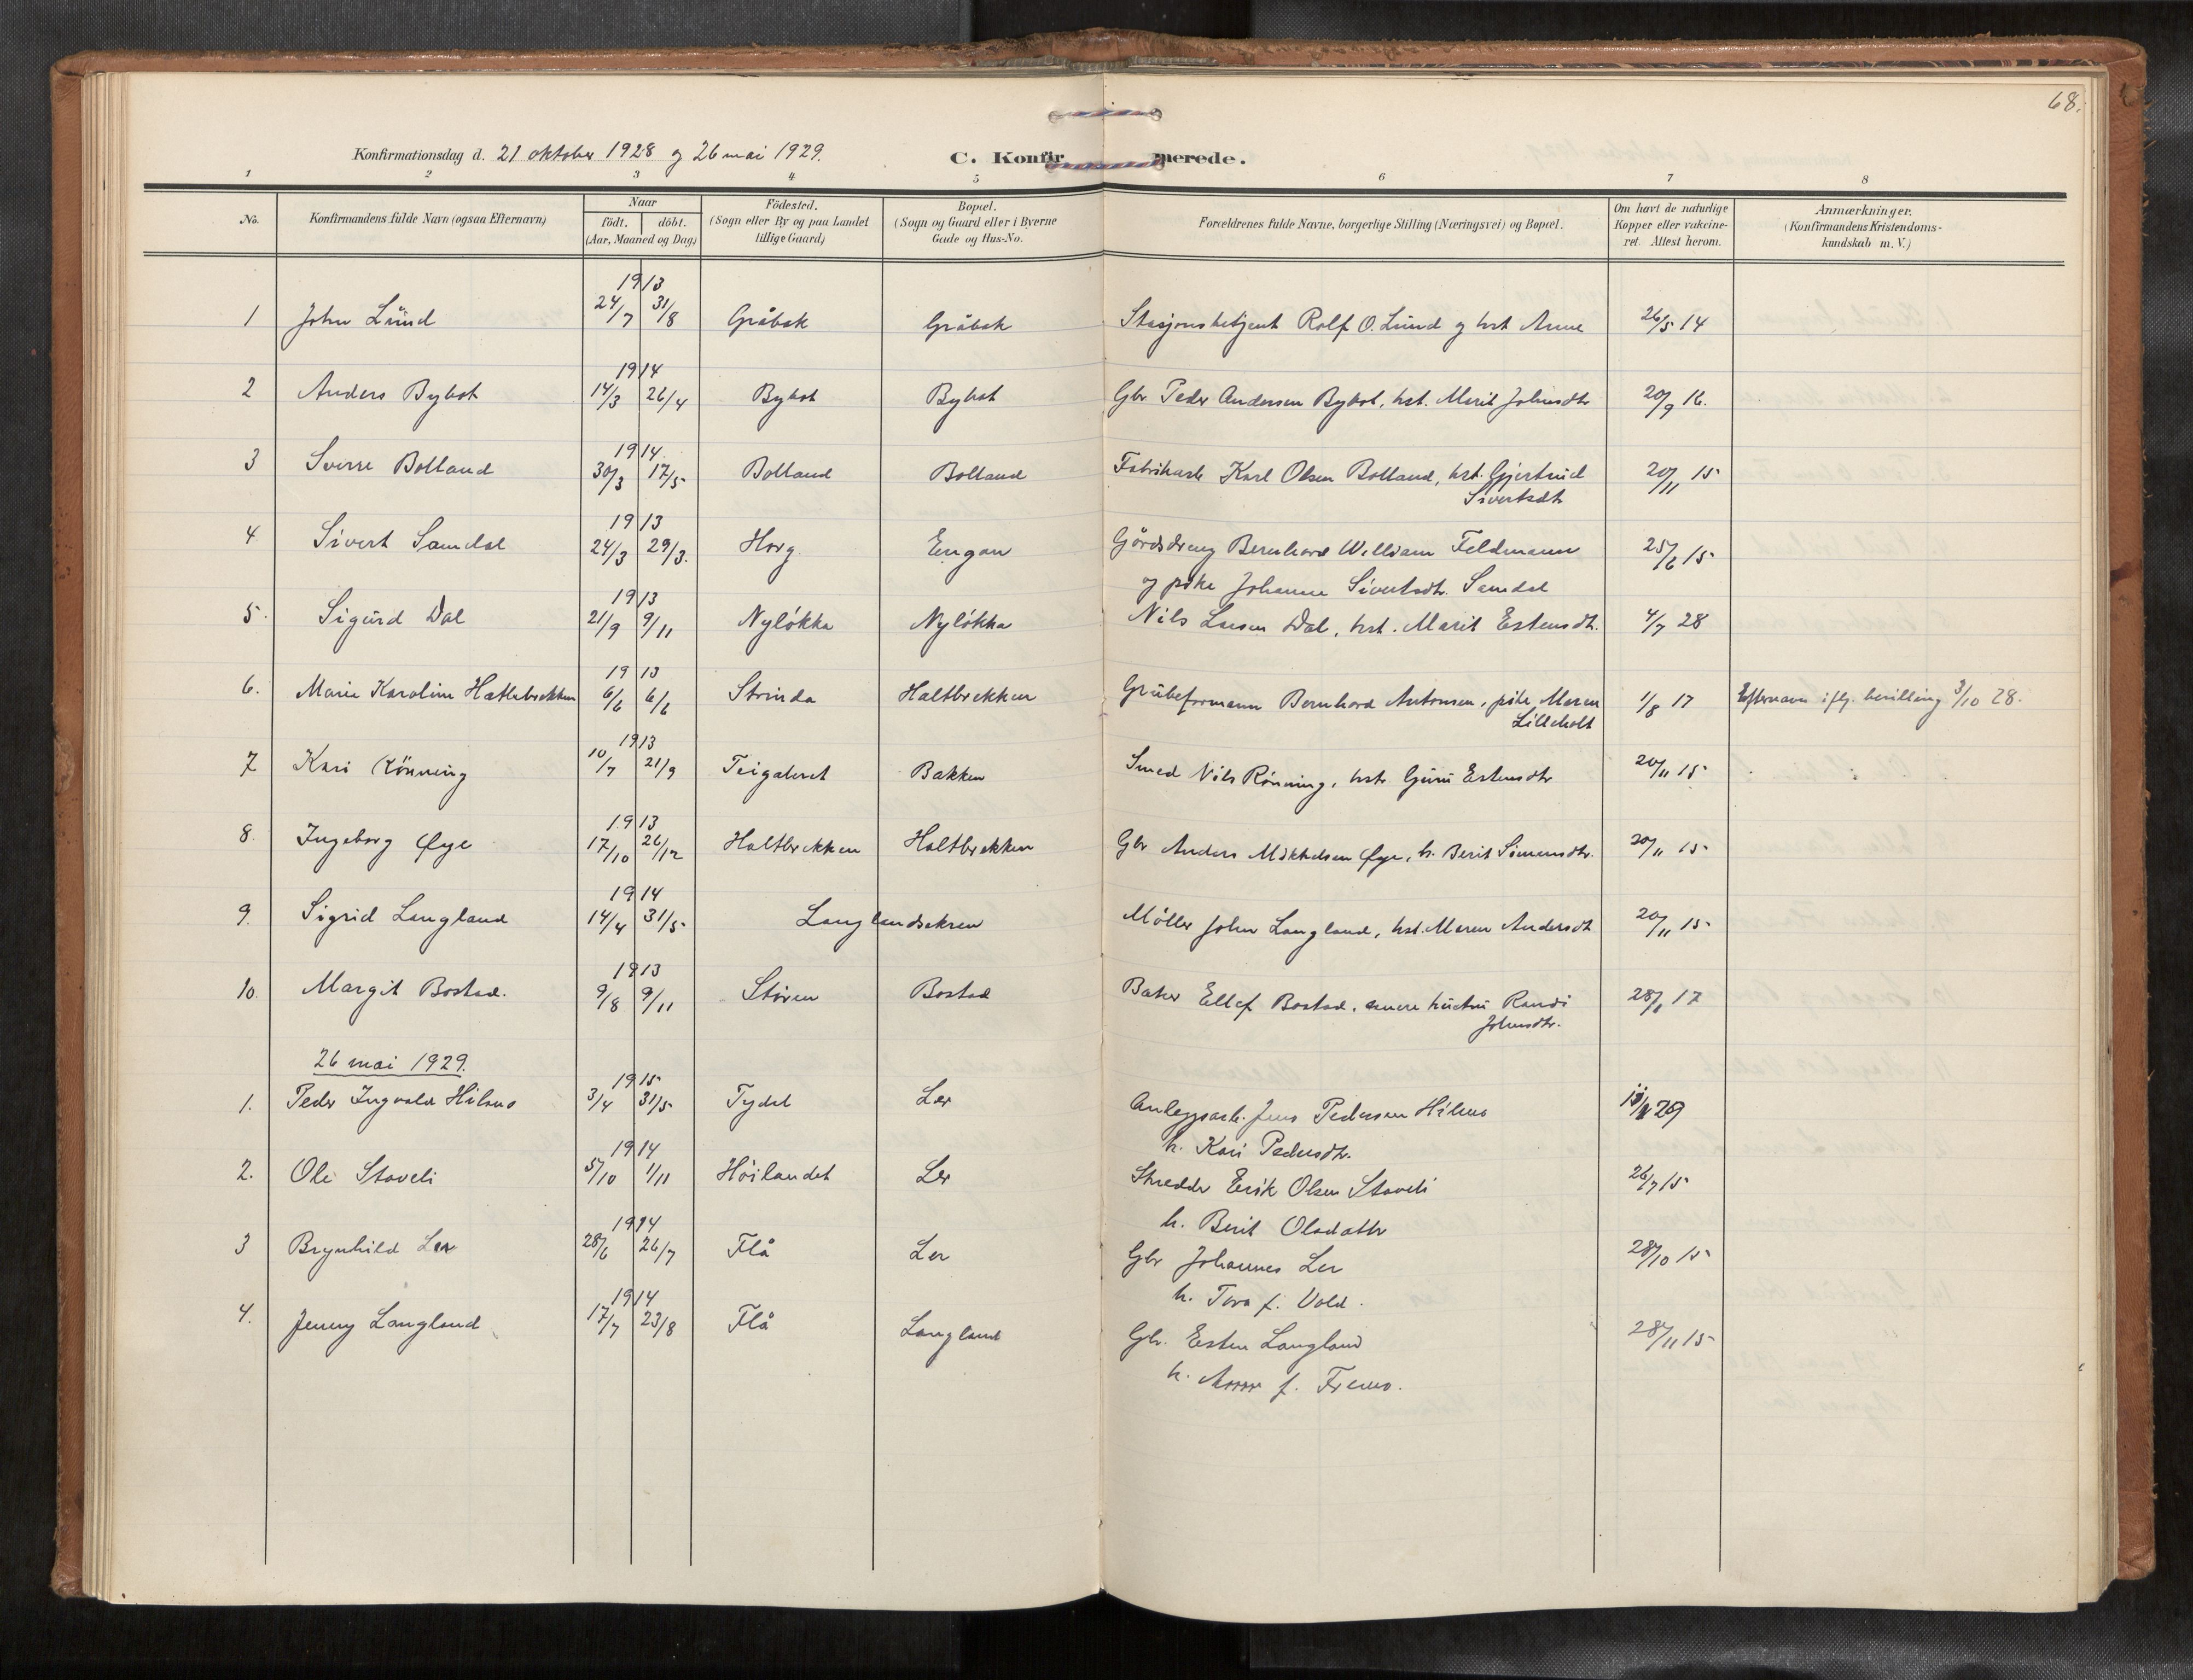 68.
Konfirmationsdag d. 21 oktober 1928 og 26 mai 1929.
C. Konfirmerede.
1 2 3 4 5 6 7 8
No.
Konfirmandens fulde Navn (ogsaa Efternavn)
Naar
födt. döbt.
(Aar, Maaned og Dag)
Födested.
(Sogn eller By og paa Landet
tillige Gaard)
Bopæl.
(Sogn og Gaard eller i Byerne
Gade og Hus-No.
Forældrenes fulde Navne, borgerlige Stilling (Næringsvei) og Bopæl.
Om havt de naturlige
Kopper eller vakcine-
ret. Attest herom.
Anmærkninger.
(Konfirmandens Kristendoms-
kundskab m. V.)
1913
1 John Lund 24/7 31/8 Gråbak Gråbak Stasjonsbetjent Rolf O. Lund og hst Anne 26/5 14
1914
2 Anders Bybot 14/3 26/4 Bybot Bybot Gbr Peder Andersen Bybot, hst. Marit Johnsdtr 20/9 16.
1914.
3 Sverre Bolland 30/3 17/5 Bolland Bolland Fabrikarb Karl Olsen Bolland, hst. Gjertrud 20/11 15
Sivertsdtr
1913
4 Sivert Samdal 24/3 29/3. Horg Engan Gårdsdreng Bernhard William Feldmann 25/6 15
og pike Johanne Sivertsdtr. Samdal
1913
5. Sigurd Dal 21/9 9/11 Nyløkka Nyløkka Nils Larsen Dal, hst. Marit Estensdtr. 4/7 28
1913
6. Marie Karoline Haltbrekken 6/6 6/6 Strinda Haltbrekken Grubeformann Bernhard Antonsen, pike Maren 1/8 17 Efternavn iflg. bevilling 3/10 28.
Lilleholt
1913
7 Kari Rönning 10/7 21/9 Teigaleret Bakken Smed Nils Rönning, hstr Guru Estensdtr 20/11 15
1913
8. Ingeborg Øye 17/10 26/12 Haltbrekken Haltbrekken Gbr Anders Mikkelsen Øye, h. Berit Simensdtr. 20/11 15
1914
9. Sigrid Langland 14/4 31/5 Langlandsekren Møller John Langland, hst. Maren Andersdt 20/11 15
1913
10. Margit Bostad. 9/8 9/11 Støren Bostad Baker Ellef Bostad, senere hustru Randi 28/8 17
Johnsdtr.
26 mai 1929.
1915
1. Peder Ingvald Hilmo 3/4 31/5 Tydal Ler Anleggsarb. Jens Pedersen Hilmo 29
h. Kari Pedersdtr.
1914
2. Ole Staveli 5/10 1/11 Höilandet Ler Skredder Erik Olsen Staveli 26/7 15
h. Berit Olsdatter
1914
3 Brynhild Ler 28/6 26/7 Flå Ler Gbr Johannes Ler 28/10 15
h. Tora f. Vold.
1914
4. Jenny Langland 17/7 23/8 Flå Langland Gbr. Esten Langland 28/11 15
h. f. Fremo.